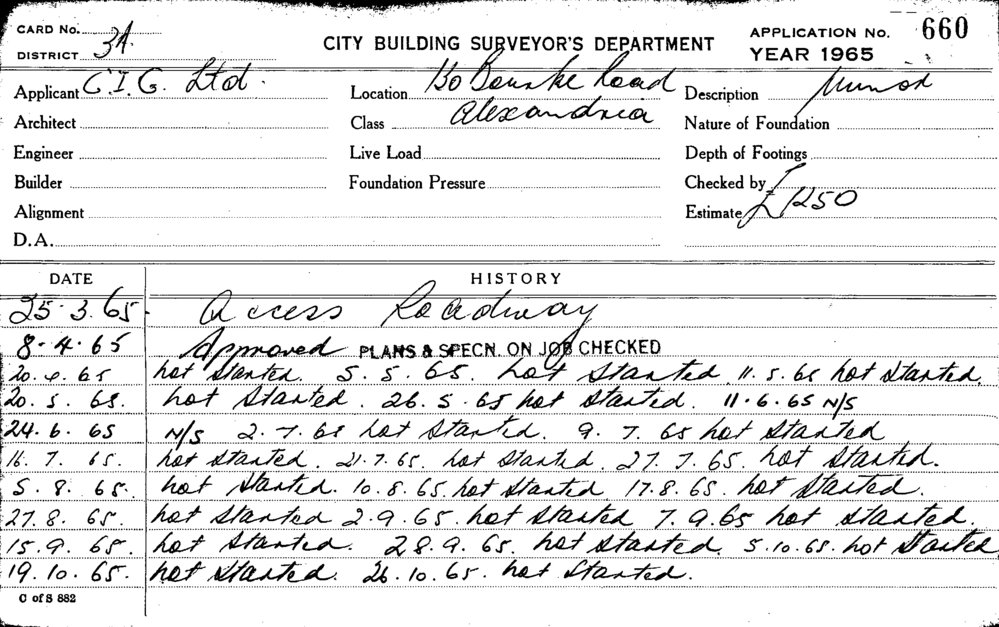 CARD No.
DISTRICT 3A.
CITY BUILDING SURVEYOR'S DEPARTMENT
APPLICATION No. 660
YEAR 1965
Applicant C.I.G. Ltd.
Location 130 Bourke Road
Alexandria
Description Minor
Architect
Class
Nature of Foundation
Engineer
Live Load
Depth of Footings
Builder
Foundation Pressure
Checked by
Alignment
Estimate £1250
D.A.
DATE HISTORY
25.3.65. Access Roadway
8.4.65 Approved PLANS & SPECN. ON JOB CHECKED
20.4.65 Not Started. 5.5.65. Not Started. 11.5.65 Not Started.
20.5.65. Not Started. 26.5.65 Not Started. 11.6.65 N/S
24.6.65 N/S 2.7.65 Not Started. 9.7.65 Not Started
16.7.65. Not Started. 21.7.65. Not Started. 27.7.65. Not Started.
5.8.65. Not Started. 10.8.65. Not Started. 17.8.65. Not Started.
27.8.65. Not Started 2.9.65. Not Started 7.9.65 Not Started.
15.9.65. Not Started. 28.9.65. Not Started. 5.10.65. Not Started
19.10.65. Not Started. 26.10.65. Not Started.
C of S 882